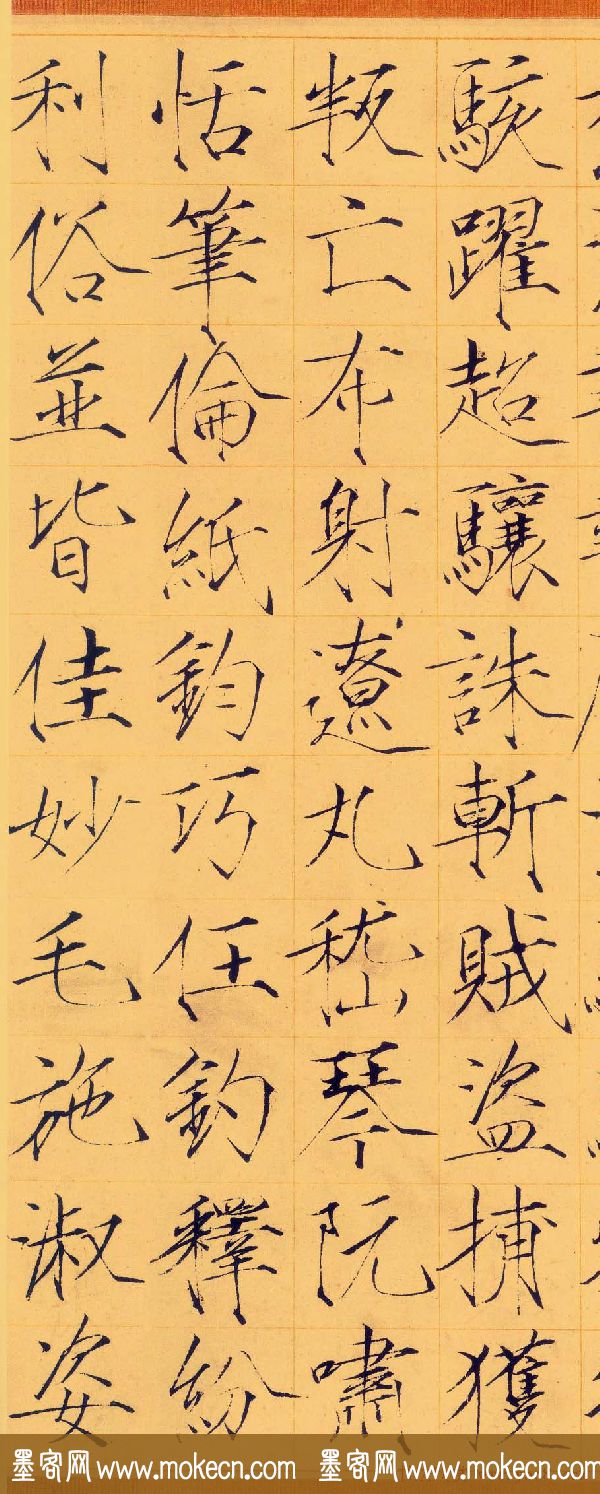 駭躍超驤誅斬賊盜捕獲
叛亡布射遼丸嵇琴阮嘯
恬筆倫紙鈞巧任釣釋紛
利俗並皆佳妙毛施淑姿
墨客网 www.mokecn.com 墨客网 www.mokecn.com